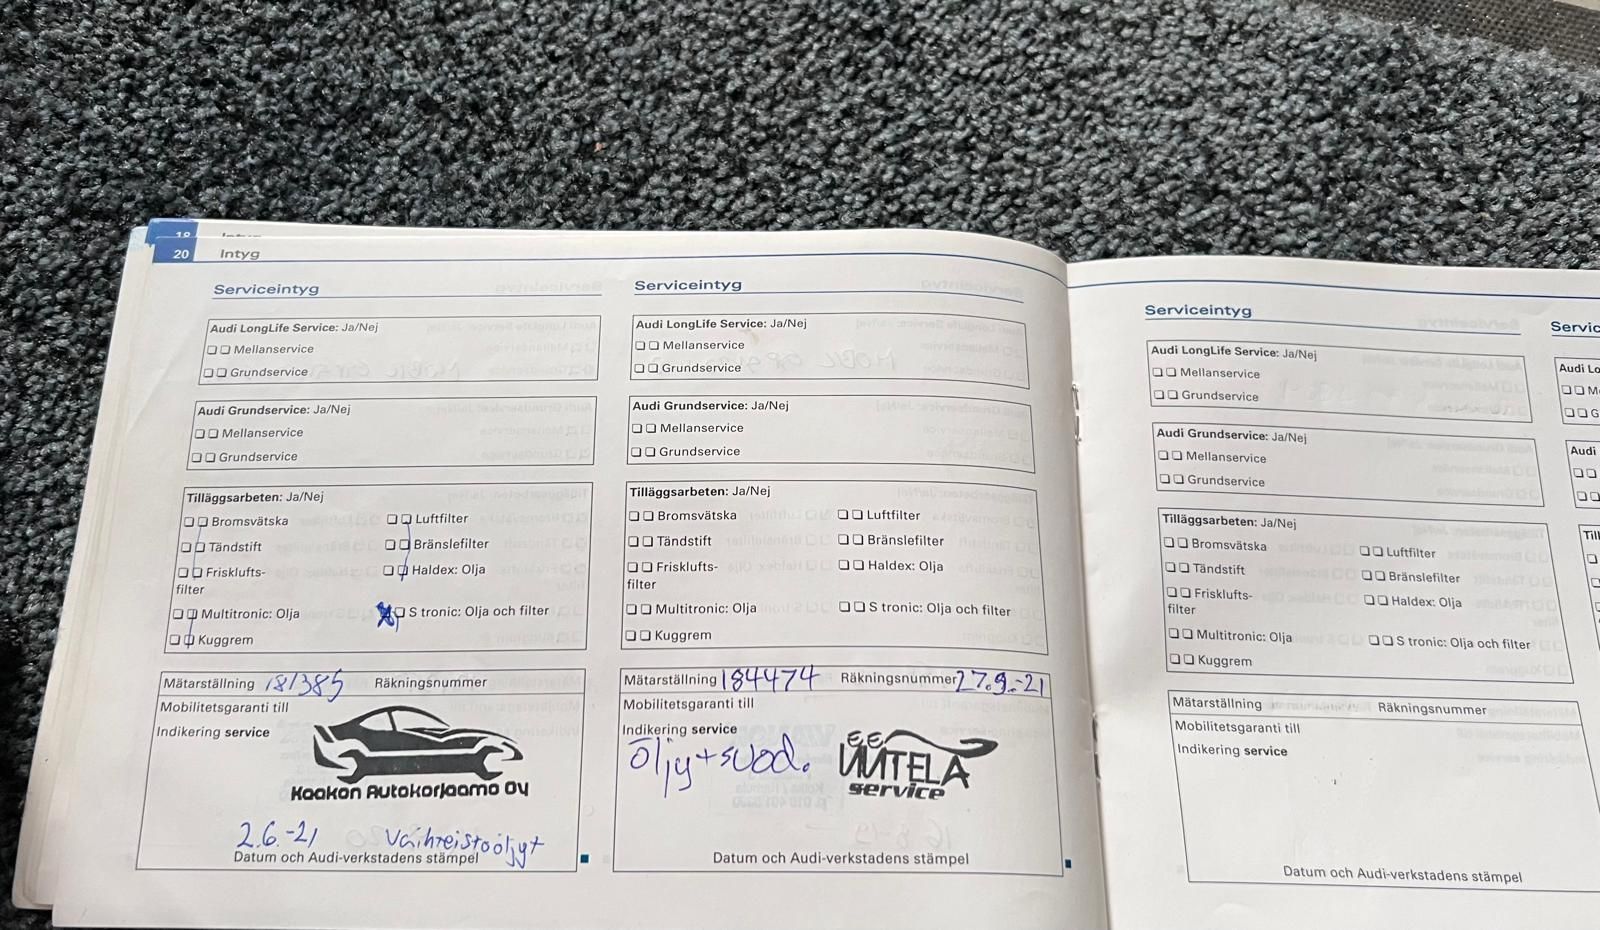 20 Intyg
Serviceintyg
Audi LongLife Service: Ja/Nej
Mellanservice
Grundservice
Audi Grundservice: Ja/Nej
Mellanservice
Grundservice
Tilläggsarbeten: Ja/Nej
Bromsvätska Luftfilter
Tändstift Bränslefilter
Frisklufts- Haldex: Olja
filter
Multitronic: Olja S tronic: Olja och filter
Kuggrem
Mätarställning 181385 Räkningsnummer
Mobilitetsgaranti till
Indikering service
Kaakon Autokorjaamo Oy
2.6.-21 Vaihteistoöljyt
Datum och Audi-verkstadens stämpel
Serviceintyg
Audi LongLife Service: Ja/Nej
Mellanservice
Grundservice
Audi Grundservice: Ja/Nej
Mellanservice
Grundservice
Tilläggsarbeten: Ja/Nej
Bromsvätska Luftfilter
Tändstift Bränslefilter
Frisklufts- Haldex: Olja
filter
Multitronic: Olja S tronic: Olja och filter
Kuggrem
Mätarställning 184474 Räkningsnummer 27.9.-21
Mobilitetsgaranti till
Indikering service
öljy+suod.
service
Datum och Audi-verkstadens stämpel
Serviceintyg
Audi LongLife Service: Ja/Nej
Mellanservice
Grundservice
Audi Grundservice: Ja/Nej
Mellanservice
Grundservice
Tilläggsarbeten: Ja/Nej
Bromsvätska Luftfilter
Tändstift Bränslefilter
Frisklufts- Haldex: Olja
filter
Multitronic: Olja S tronic: Olja och filter
Kuggrem
Mätarställning Räkningsnummer
Mobilitetsgaranti till
Indikering service
Datum och Audi-verkstadens stämpel
Servic
Audi Lo
Audi